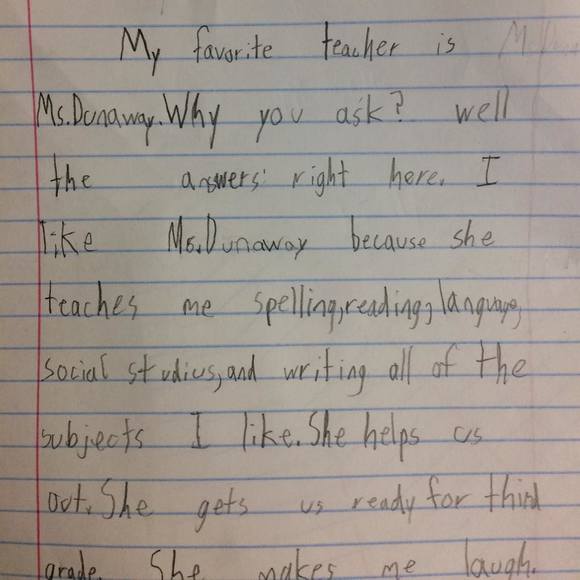 My favorite teacher is
Ms.Dunaway.Why you ask? well
the answers right here. I
like Ms.Dunaway because she
teaches me spelling,reading,language,
social studius,and writing all of the
subjects I like.She helps us
out.She gets us ready for third
grade. She makes me laugh.